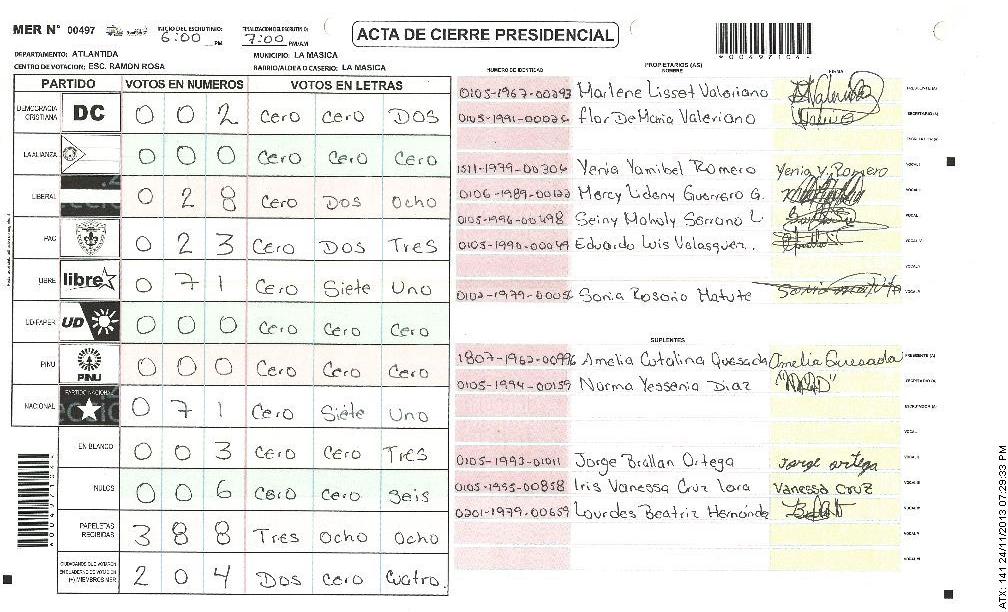 MER N° 00497
INICIO DEL ESCRUTINIO: 6:00 PM
FINALIZACION DE ESCRUTINIO: 7:00 PM/AM
ACTA DE CIERRE PRESIDENCIAL
*00497104*
DEPARTAMENTO: ATLANTIDA
MUNICIPIO: LA MASICA
CENTRO DE VOTACION: ESC. RAMON ROSA
BARRIO/ALDEA O CASERIO: LA MASICA
PARTIDO VOTOS EN NUMEROS VOTOS EN LETRAS
DEMOCRACIA CRISTIANA DC 0 0 2 Cero Cero Dos
LA ALIANZA 0 0 0 Cero Cero Cero
LIBERAL 0 2 8 Cero Dos Ocho
PAC 0 2 3 Cero Dos Tres
LIBRE libre 0 7 1 Cero Siete Uno
UD-FAPER UD 0 0 0 Cero Cero Cero
PINU PINU 0 0 0 Cero Cero Cero
NACIONAL PARTIDO NACIONAL 0 7 1 Cero Siete Uno
EN BLANCO 0 0 3 Cero Cero Tres
NULOS 0 0 6 Cero Cero Seis
PAPELETAS RECIBIDAS 3 8 8 Tres Ocho Ocho
CIUDADANOS QUE VOTARON EN CUADERNO DE VOTACION (+) MIEMBROS MER 2 0 4 Dos Cero Cuatro.
NUMERO DE IDENTIDAD PROPIETARIOS (AS) NOMBRE FIRMA
0105-1967-00293 Marlene Lisset Valeriano PRESIDENTE (A)
0105-1991-00026 flor De Maria Valeriano SECRETARIO (A)
ESCRUTADOR (A)
1511-1979-00306 Yenia Yamibel Romero Yenia Y. Romero VOCAL I
0106-1989-00122 Mercy Lideny Guerrero G. VOCAL II
0105-1996-00498 Seiny Maholy Sorrano L. VOCAL
0105-1990-00049 Eduardo Luis Velasquez. VOCAL IV
VOCAL V
0102-1979-00056 Sonia Rosario Matute VOCAL VI
SUPLENTES
1807-1962-00996 Amelia Catalina Quesada Amelia Quesada PRESIDENTE (A)
0105-1994-00159 Norma Yessenia Diaz SECRETARIO (A)
ESCRUTADOR (A)
VOCAL I
0105-1993-01011 Jorge Brallan Ortega Jorge ortega VOCAL II
0105-1995-00858 Iris Vanessa Cruz Lara Vanessa Cruz VOCAL III
0201-1979-00659 Lourdes Beatriz Hernánde VOCAL IV
VOCAL V
VOCAL VI
*00497104*
ATX: 141 24/11/2013 07:29:33 PM